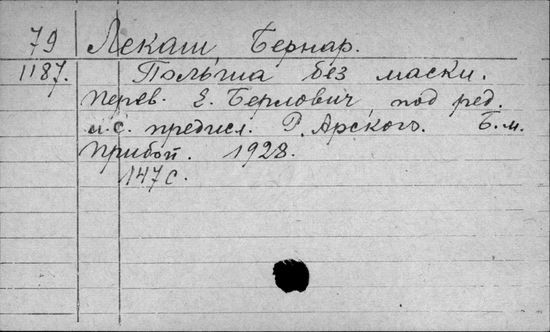 79 Лекаш, Бернар.
1187. Польша без маски.
Перев. Е. Берлович, под ред.
и с. предисл. Р. Арского. Б.м.
Прибой. 1928.
147 с.